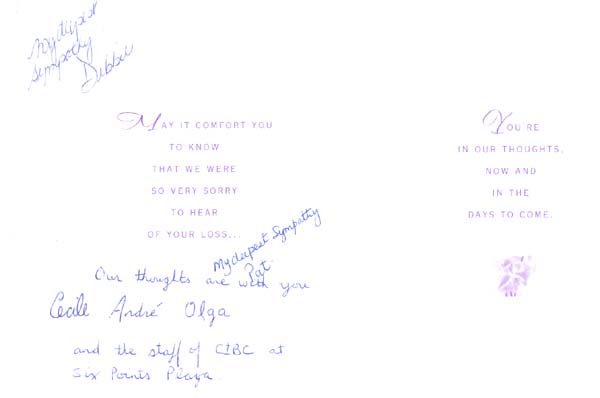 My deepest
sympathy
Debbie
MAY IT COMFORT YOU
TO KNOW
THAT WE WERE
SO VERY SORRY
TO HEAR
OF YOUR LOSS...
My deepest sympathy
Pat
Our thoughts are with you
Cecile André Olga
and the staff of CIBC at
Six Points Plaza.
YOU'RE
IN OUR THOUGHTS,
NOW AND
IN THE
DAYS TO COME.